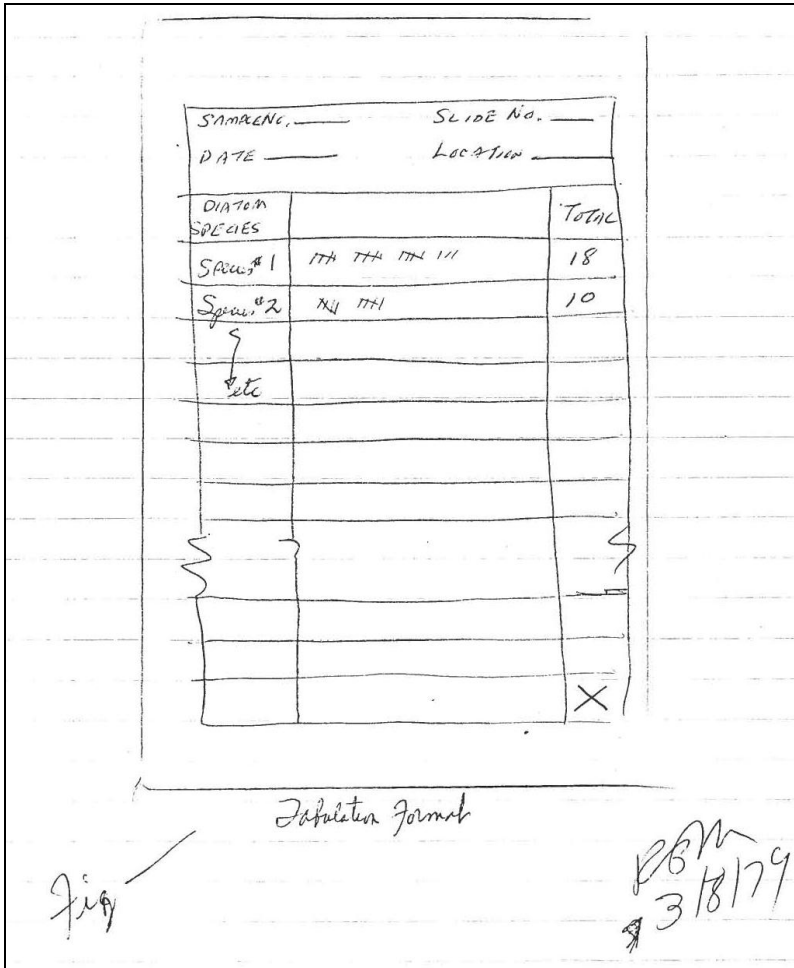 SAMPLE NO. ____ SLIDE NO. ____
DATE ____ LOCATION ____
DIATOM TOTAL
SPECIES
Species #1 18
Species #2 10
etc
X
Tabulation Format
Fig
3/8/79